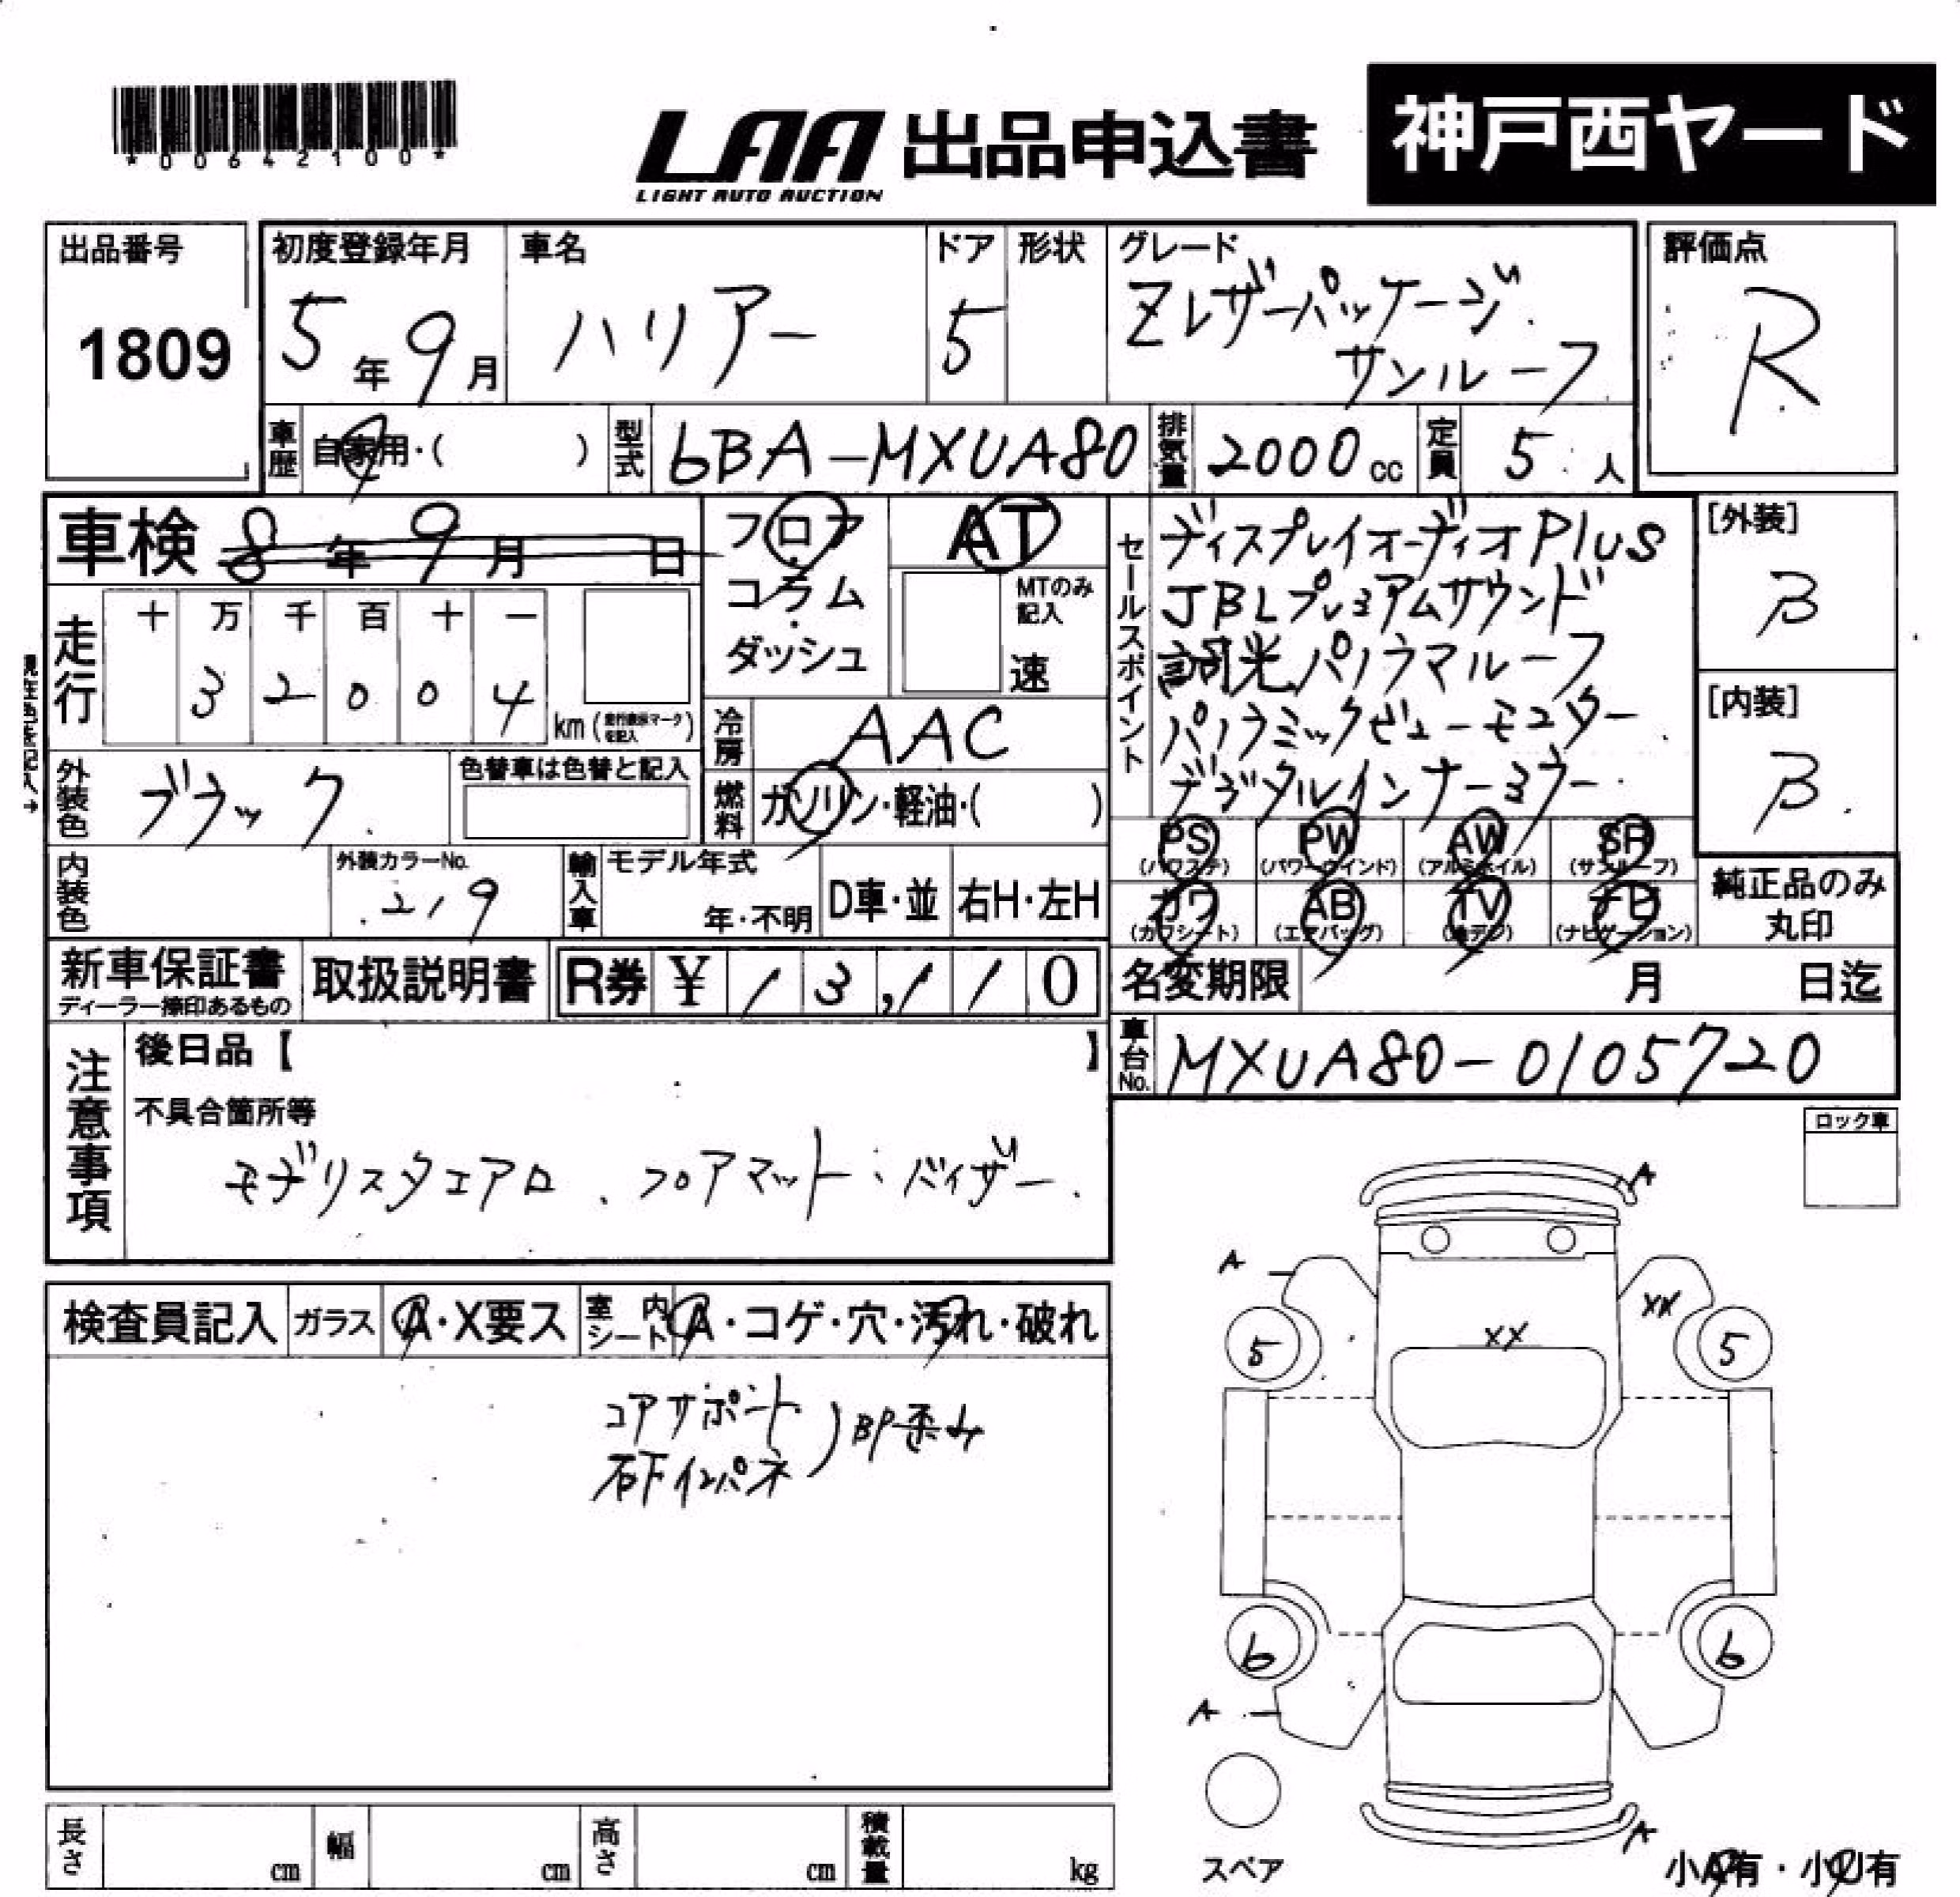 *00642100*
LAA 出品申込書
LIGHT AUTO AUCTION
神戸西ヤード
出品番号
1809
初度登録年月
5年 9月
車名
ハリアー
ドア
5
形状
グレード
Zレザーパッケージ
サンルーフ
評価点
R
車歴
自家用・( )
型式
6BA-MXUA80
排気量
2000cc
定員
5人
車検 8年 9月 日
フロア
コラム
ダッシュ
AT
MTのみ記入
速
セールスポイント
ディスプレイオーディオPlus
JBLプレミアムサウンド
調光パノラマルーフ
パノラミックビューモニター
デジタルインナーミラー
[外装]
B
[内装]
B
走行
十 万 千 百 十 一
3 2 0 0 4
km(走行表示マークを記入)
現在色を記入→
冷房
AAC
外装色
ブラック
色替車は色替と記入
燃料
ガソリン・軽油・( )
PS (パワステ)
PW (パワーウインド)
AW (アルミホイル)
SR (サンルーフ)
カワ (カワシート)
AB (エアバッグ)
TV (地デジ)
ナビ (ナビゲーション)
純正品のみ
丸印
内装色
外装カラーNo.
219
輸入車
モデル年式
年・不明
D車・並
右H・左H
新車保証書
ディーラー捺印あるもの
取扱説明書
R券 ¥ 13,110
名変期限 月 日迄
車台No.
MXUA80-0105720
注意事項
後日品【 】
不具合箇所等
モデリスタエアロ、フロアマット、バイザー
ロック車
検査員記入
ガラス A・X要ス
室内シート A・コゲ・穴・汚れ・破れ
コアサポート
右下インパネ
)BP歪み
A
A
XX
XX
5
5
6
6
A
A
スペア
小A有・小U有
長さ cm
幅 cm
高さ cm
積載量 kg